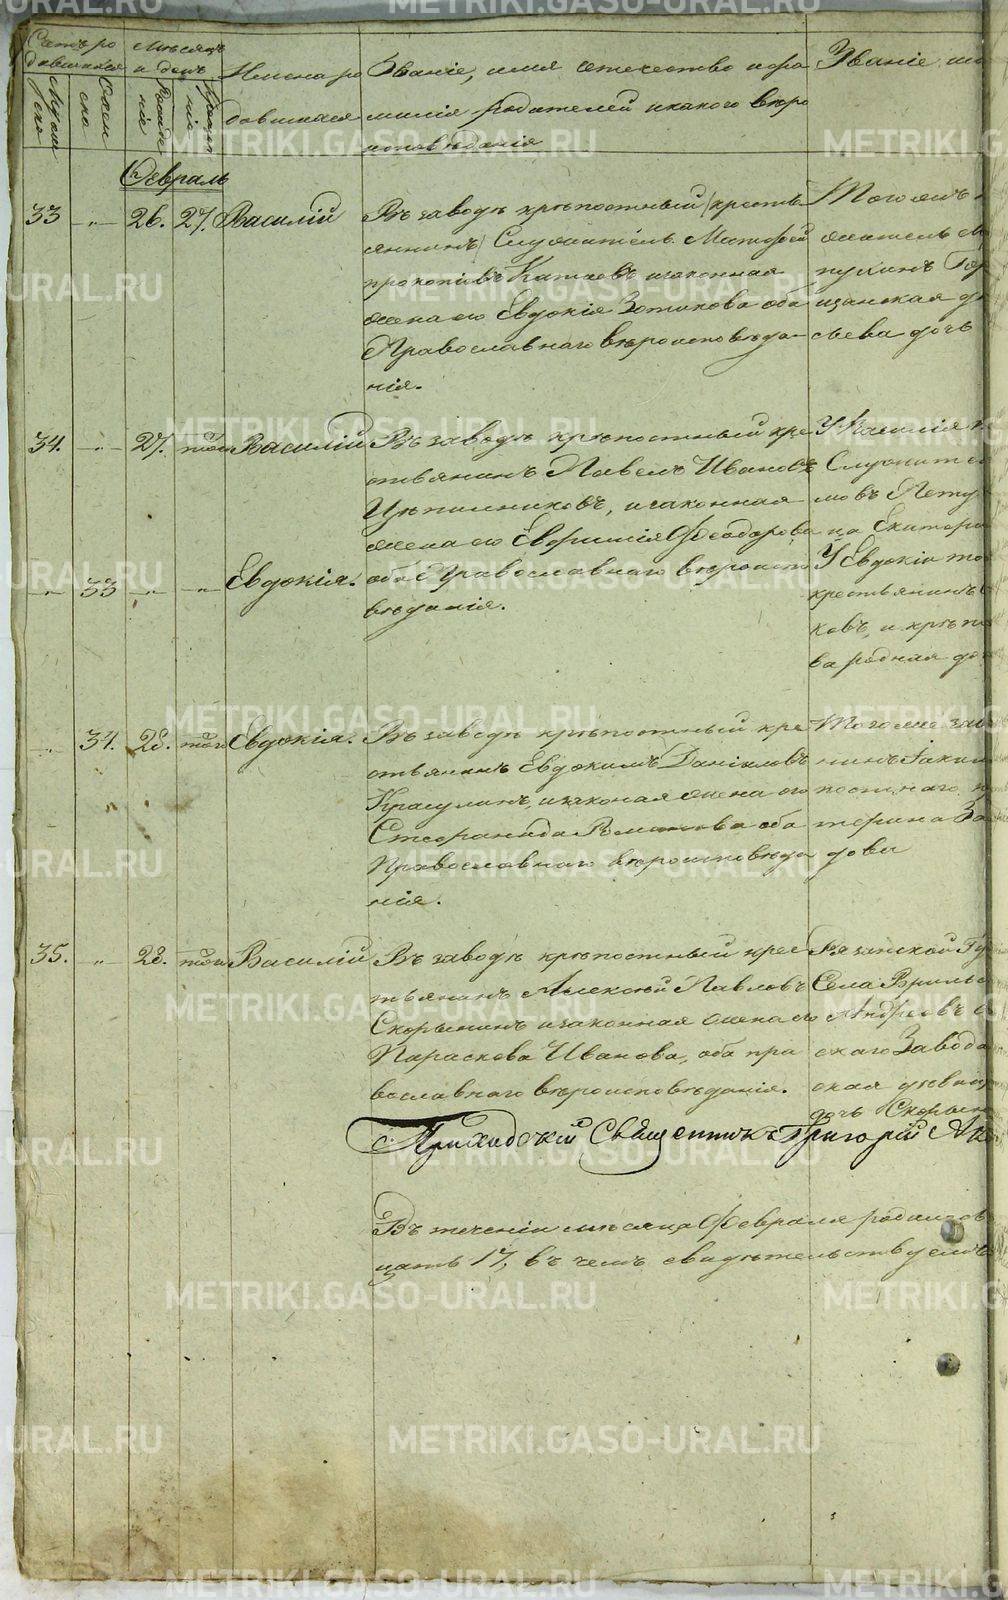 METRIKI.GASO-URAL.RU
Счетъ ро
дившихся
Муже
ско
Жен
ско
Мѣсяцъ
и день
Рожде
нія
Креще
нія
Имена ро
дившихся
Званіе, имя отечество и фа
милія родителей и какого вѣро
исповѣданія
Званіе им
Февраль
33 „ 26. 27. Василій
Въ заводѣ крѣпостный (кресть
янинъ) Служитель Матфей
Прокопіевъ и законная
жена его Евдокія Зотикова оба
Православнаго вѣроисповѣда
нія.
Тогожъ
пускинъ
занская
сьева дочь
34. „ 27. тогожъ Василій
Въ заводѣ крѣпостный кре
стьянинъ Павелъ Ивановъ
и законная
жена его Евфимія Феодорова
оба Православнаго вѣроиспо
вѣданія.
У Василія
Служите
мовъ Пету
ца Екатери
„ 33 „ „ Евдокія.
У Евдокіи то
крестьянинъ
ковъ, и крѣп
ва родная до
„ 34. 28. тогожъ Евдокія.
Въ заводѣ крѣпостный кре
стьянинъ Евдокимъ Даніиловъ
Красулинъ, и законая жена его
Стефанида Романова оба
Православнаго вѣроисповѣда
нія.
Тогоже зав
нинъ Іаким
постнаго
терина За
дова
35. „ 28. тогожъ Василій
Въ заводѣ крѣпостный крес
тьянинъ Алексѣй Павловъ
Скорынинъ и законная жена его
Параскева Иванова, оба пра
вославнаго вѣроисповѣданія.
Рязанской Гу
Села
Андреевъ
скаго Завода
ская дѣви
дочь Скорын
Приходскій Священникъ Григорій
Въ теченіи мѣсяца Февраля родилось
цать 17, въ чемъ свидѣтельствуемъ